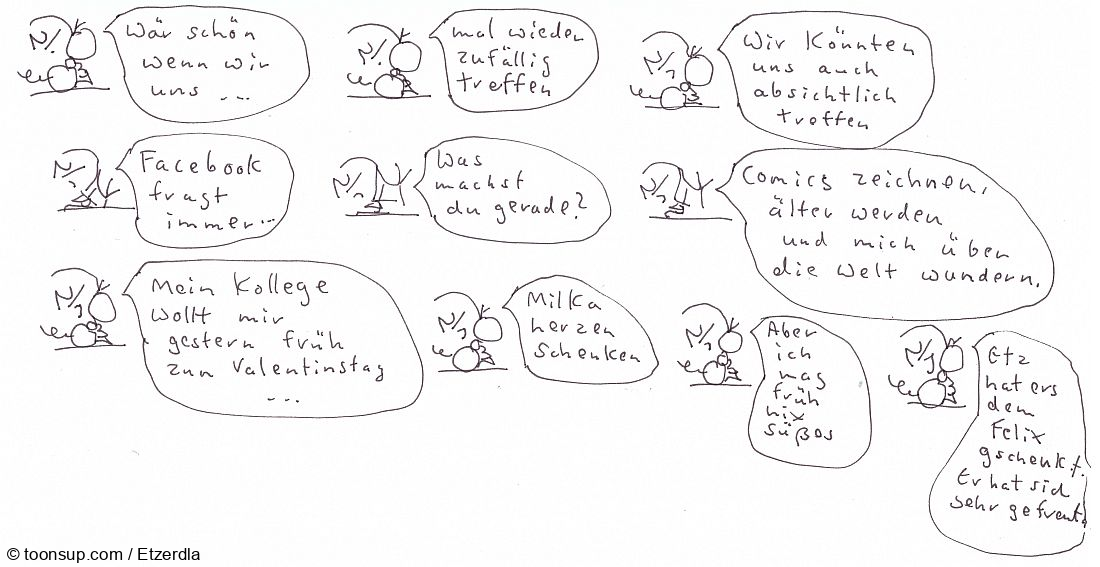 Wär schön
wenn wir
uns ...
mal wieder
zufällig
treffen
Wir Könnten
uns auch
absichtlich
treffen
Facebook
fragt
immer...
Was
machst
du gerade?
Comics zeichnen,
älter werden
und mich über
die Welt wundern.
Mein Kollege
wollt mir
gestern früh
zum Valentinstag
...
Milka
herzen
schenken
Aber
ich
mag
früh
nix
süßes
Etz
hat ers
dem
Felix
gschenkt.
Er hat sich
sehr gefreut.
© toonsup.com / Etzerdla